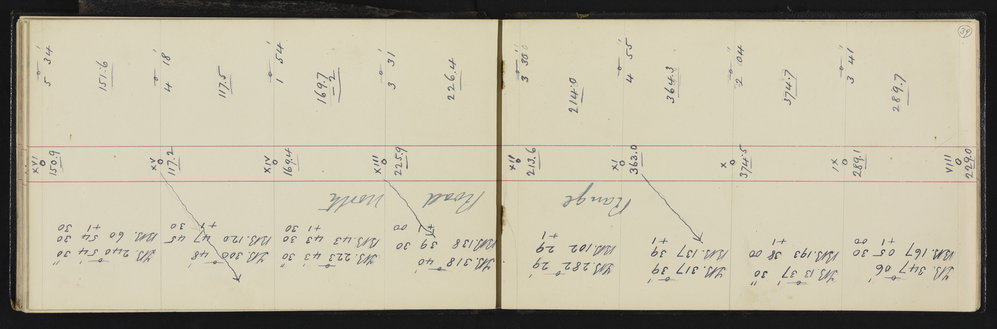 5° 34'
XVI
150.9
151.6
FB. 240° 54' 30"
BB. 60 54 30
+1 30
4° 18'
XV
117.2
117.5
FB. 300° 48'
BB. 120 47 45
+1 30
1° 54'
XIV
169.4
169.7
-2
FB. 223° 43' 30"
BB. 43 43 30
+1 30
3° 31'
XIII
225.9
226.4
FB. 318° 40'
BB. 138 39 30
+1 00
North
Road
Range
3° 30'
XII
213.6
214.0
FB. 282° 29'
BB. 102 29
+1
4° 55'
XI
363.0
364.3
FB. 317° 39'
BB. 137 39
+1
2° 04'
X
374.5
374.7
FB. 13° 37' 30"
BB. 193 38 00
+1
3° 41'
IX
289.1
289.7
FB. 347° 06'
BB. 167 05 30
+1 00
VIII
229.0
39